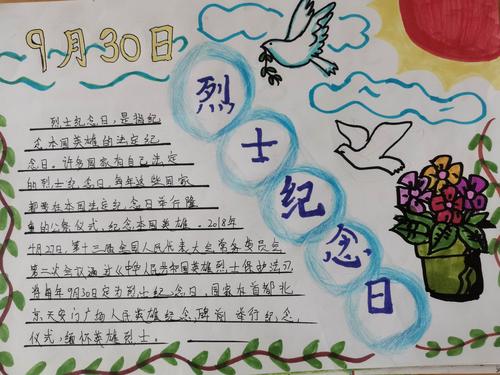 9月30日
烈士纪念日
烈士纪念日,是指纪
念本国英雄的法定纪
念日。许多国家都有自己法定
的烈士纪念日,每年这些国家
都要在本国法定纪念日举行隆
重的公祭仪式,纪念本国英雄。2018年
4月27日,第十三届全国人民代表大会常务委员会
第二次会议通过《中华人民共和国英雄烈士保护法》,
将每年9月30日定为烈士纪念日,国家在首都北
京天安门广场人民英雄纪念碑前举行纪念
仪式,缅怀英雄烈士。